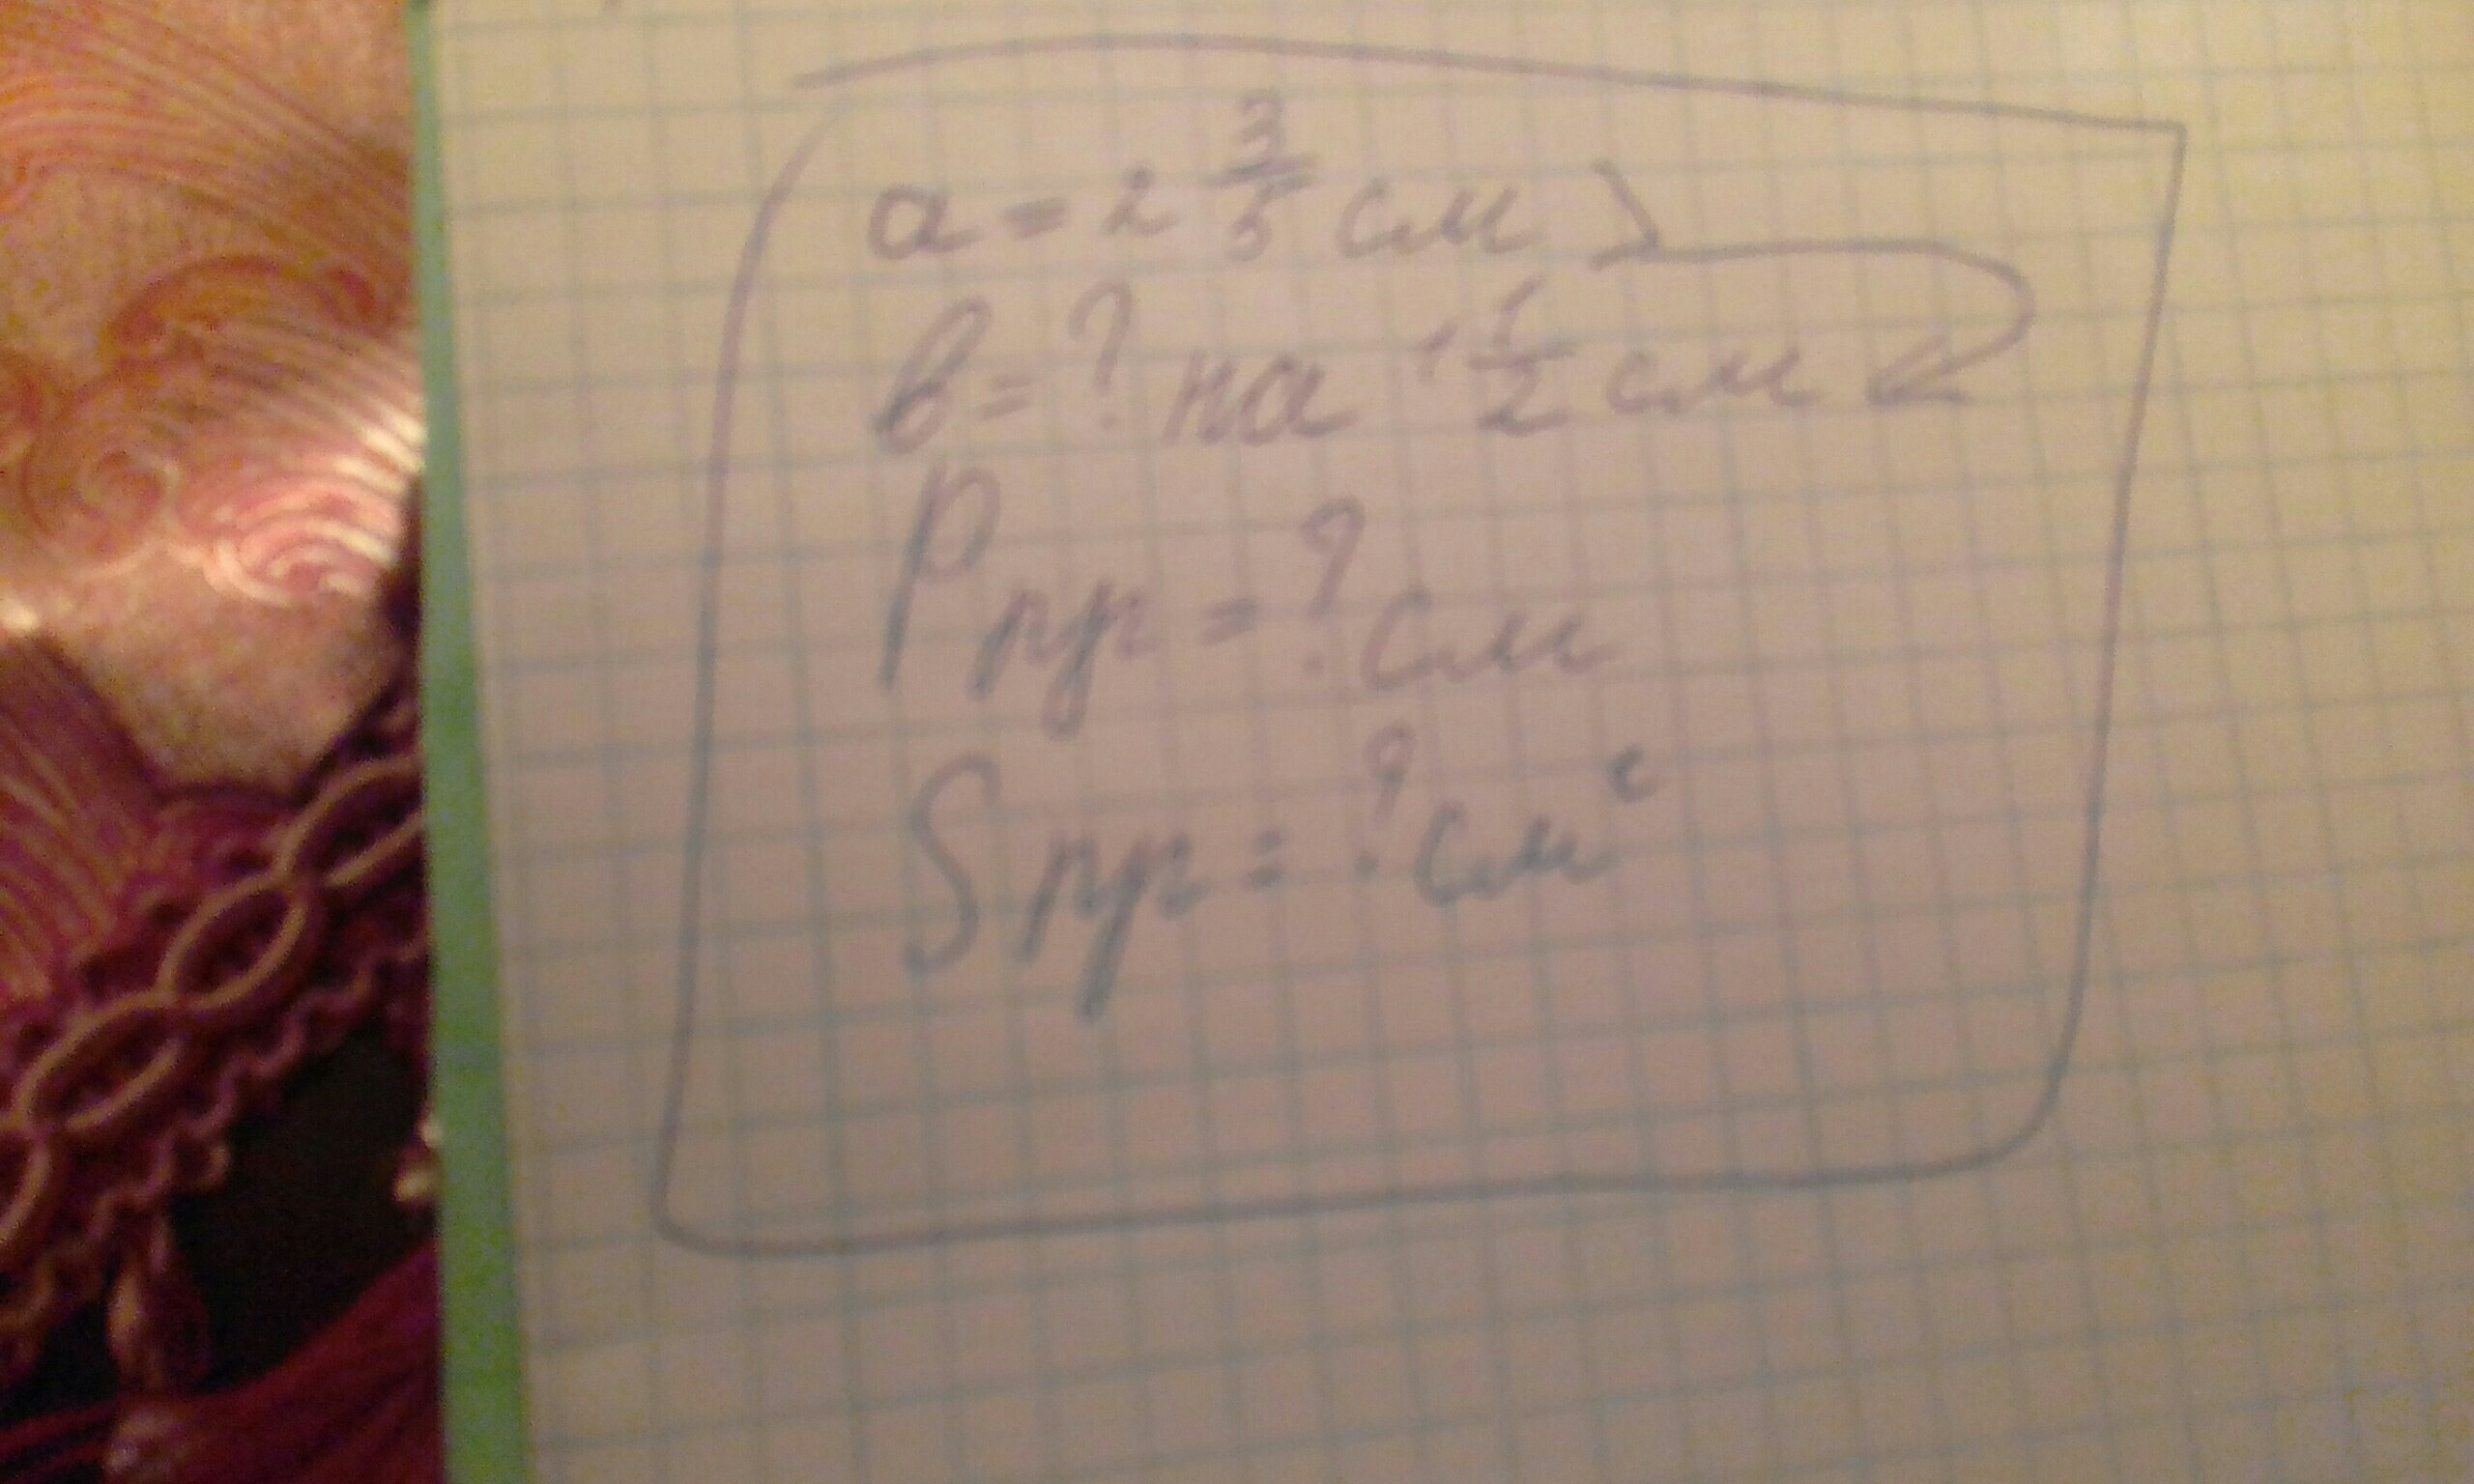 a = 2 3/5 см
в = ? на 1 1/2 см
Pпр = ? см
Sпр = ? см²